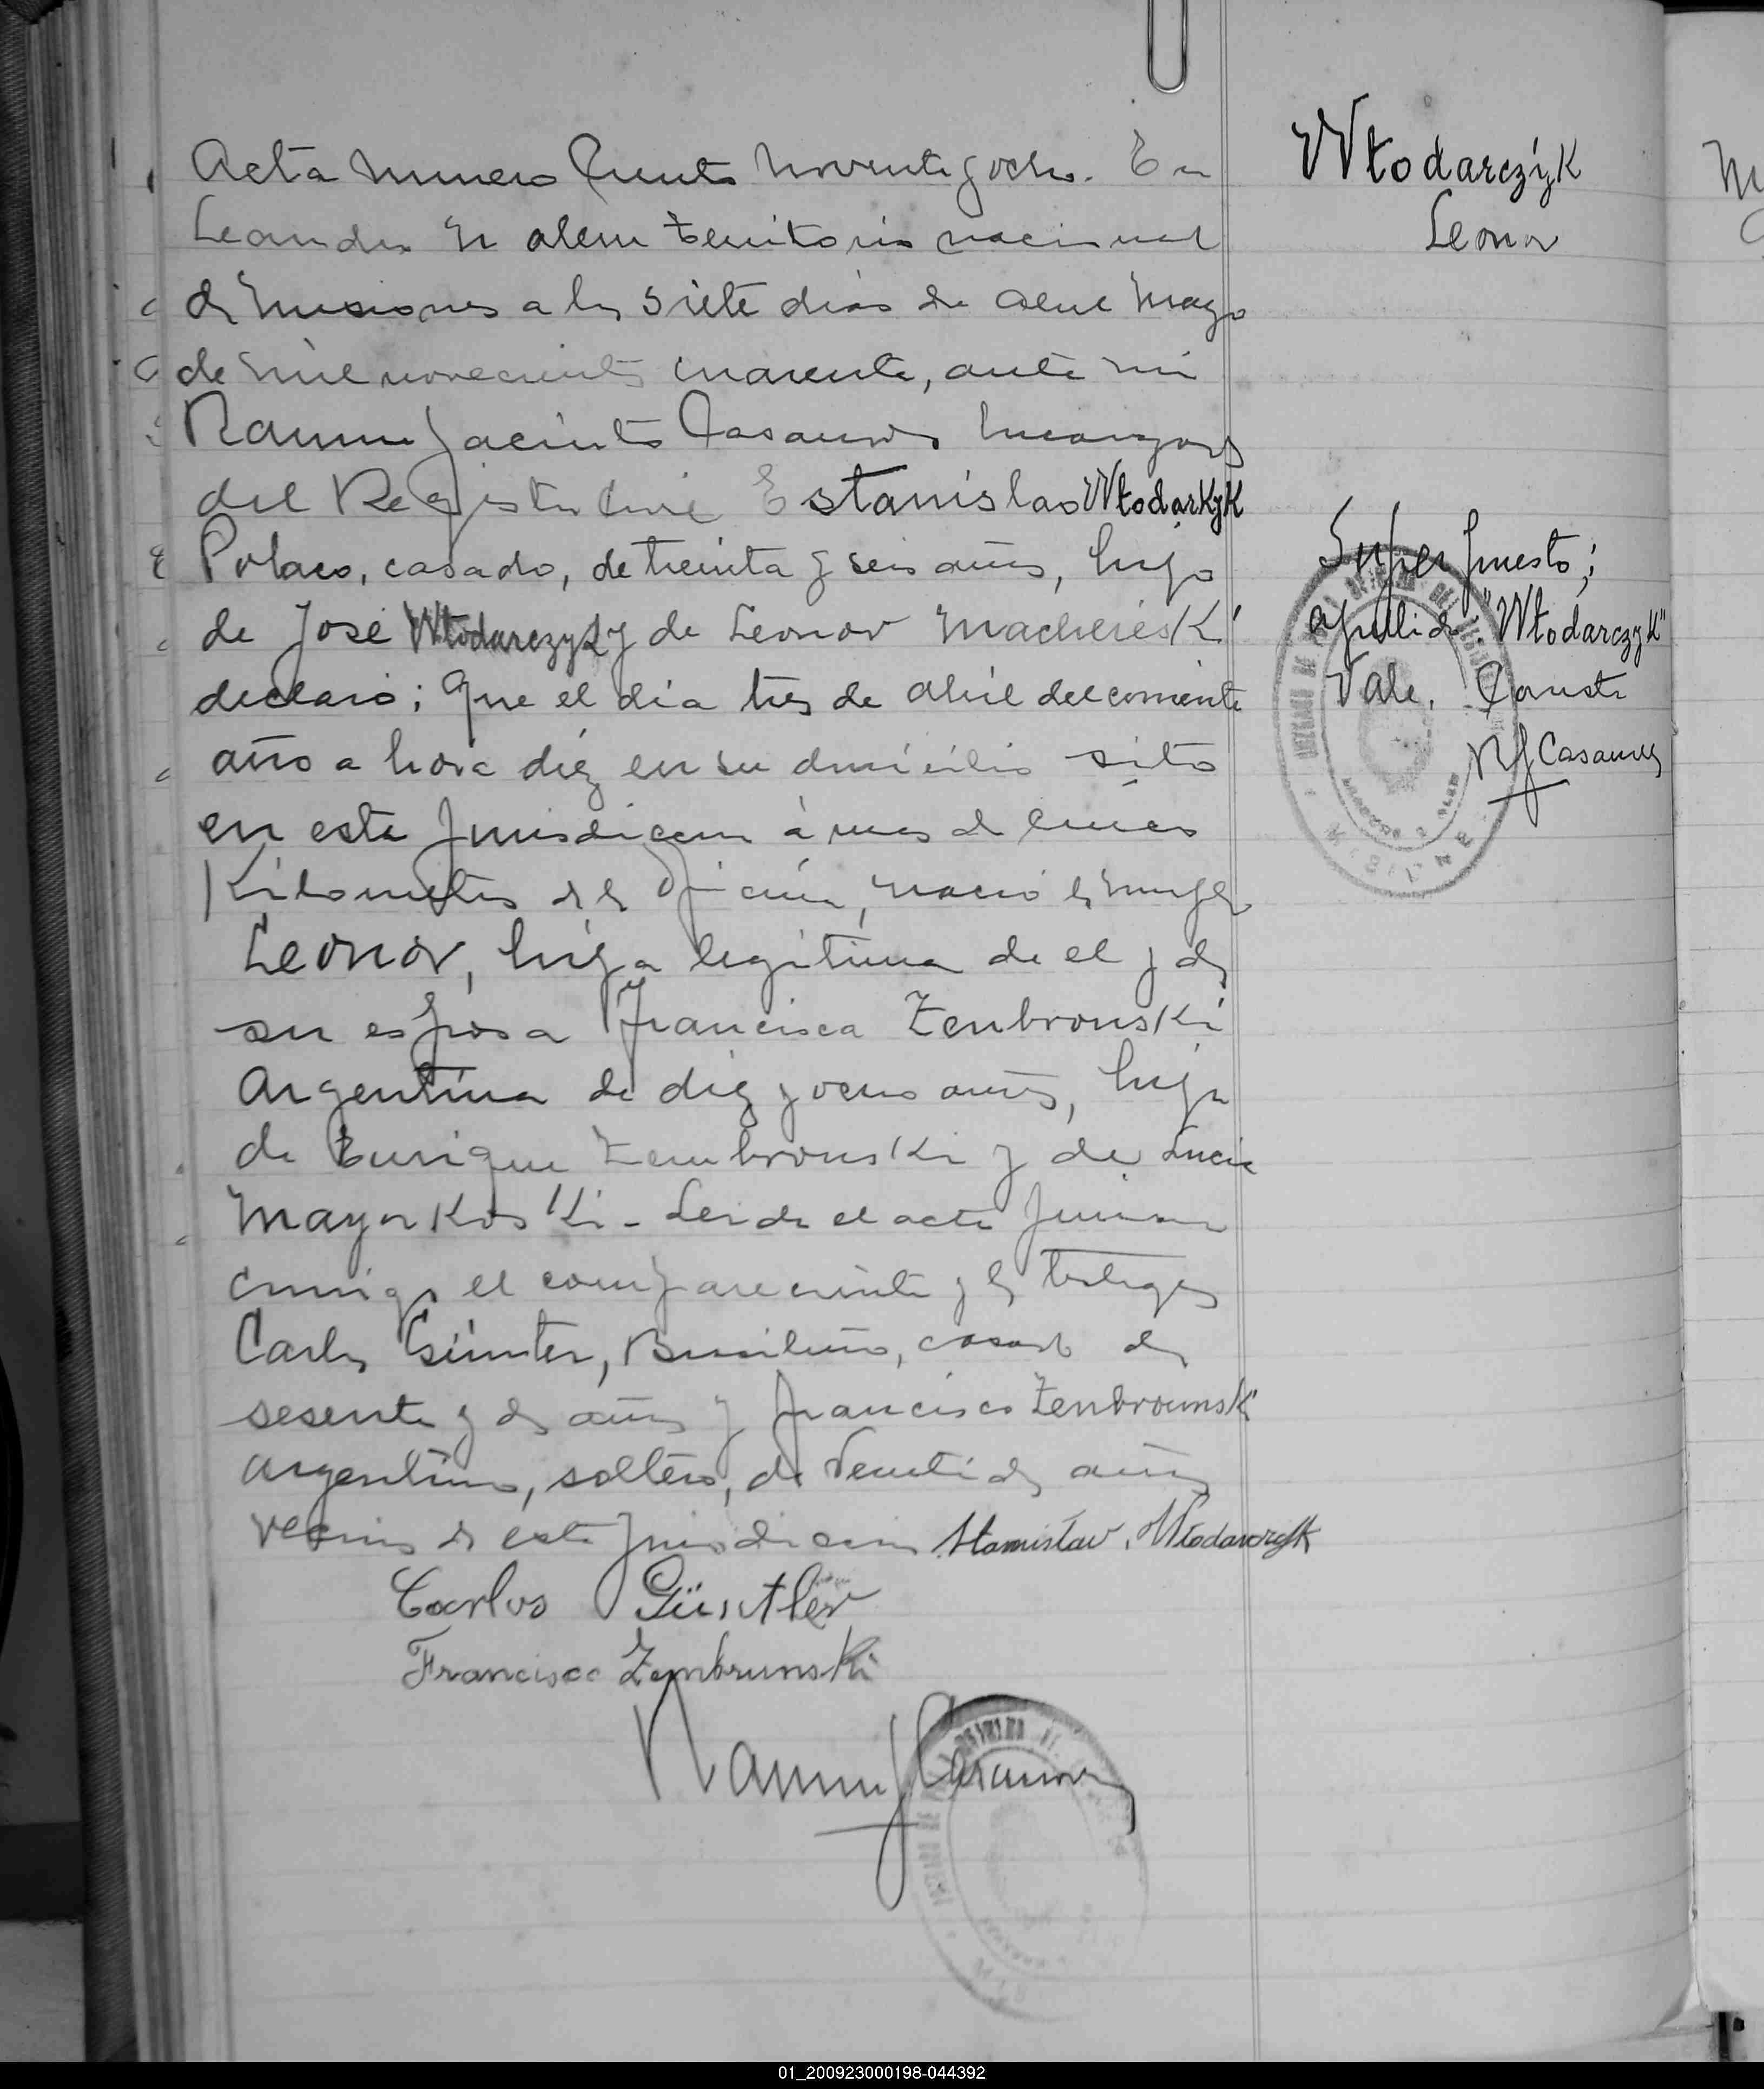 Acta numero Ciento noventa y ocho. En
Leandro N alem territorio nacional
de Misiones a los siete dias de Mayo
de mil novecientos cuarenta, ante mi
Ramon Jacinto Casanova Encargado
del Registro Civil Estanislao Włodarkyk
Polaco, casado, de treinta y seis años, hijo
de José Włodarczyk y de Leonor Macheieski
declaró; Que el dia tres de abril del corriente
año a hora diez en su domicilio sito
en esta Jurisdiccion á mas de cinco
Kilometros de la Oficina, nació la mujer
Leonor, hija legitima de el y de
su esposa Francisca Zenbrouski
Argentina de diez y ocho años, hija
de Enrique Zembrouski y de Lucia
Mayorkoski - Leida el acta firman
conmigo el compareciente y los testigos
Carlos Günter, Brasileño, casado de
sesenta y dos años y Francisco Zenbrounski
argentino, soltero, de Veintidos años
vecinos de esta Jurisdiccion Stanisław Włodarczyk
Carlos Güntler
Francisco Zembrunski
Ramon J Casanova
Włodarczyk
Leonor
Superpuesto;
apellido: "Włodarczyk"
Vale. Conste
RJ Casanova
MISIONES
01_200923000198-044392